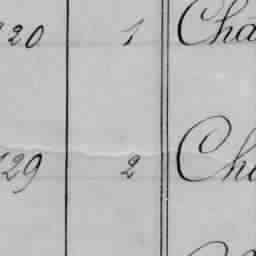 20 1 Cha
129 2 Cha